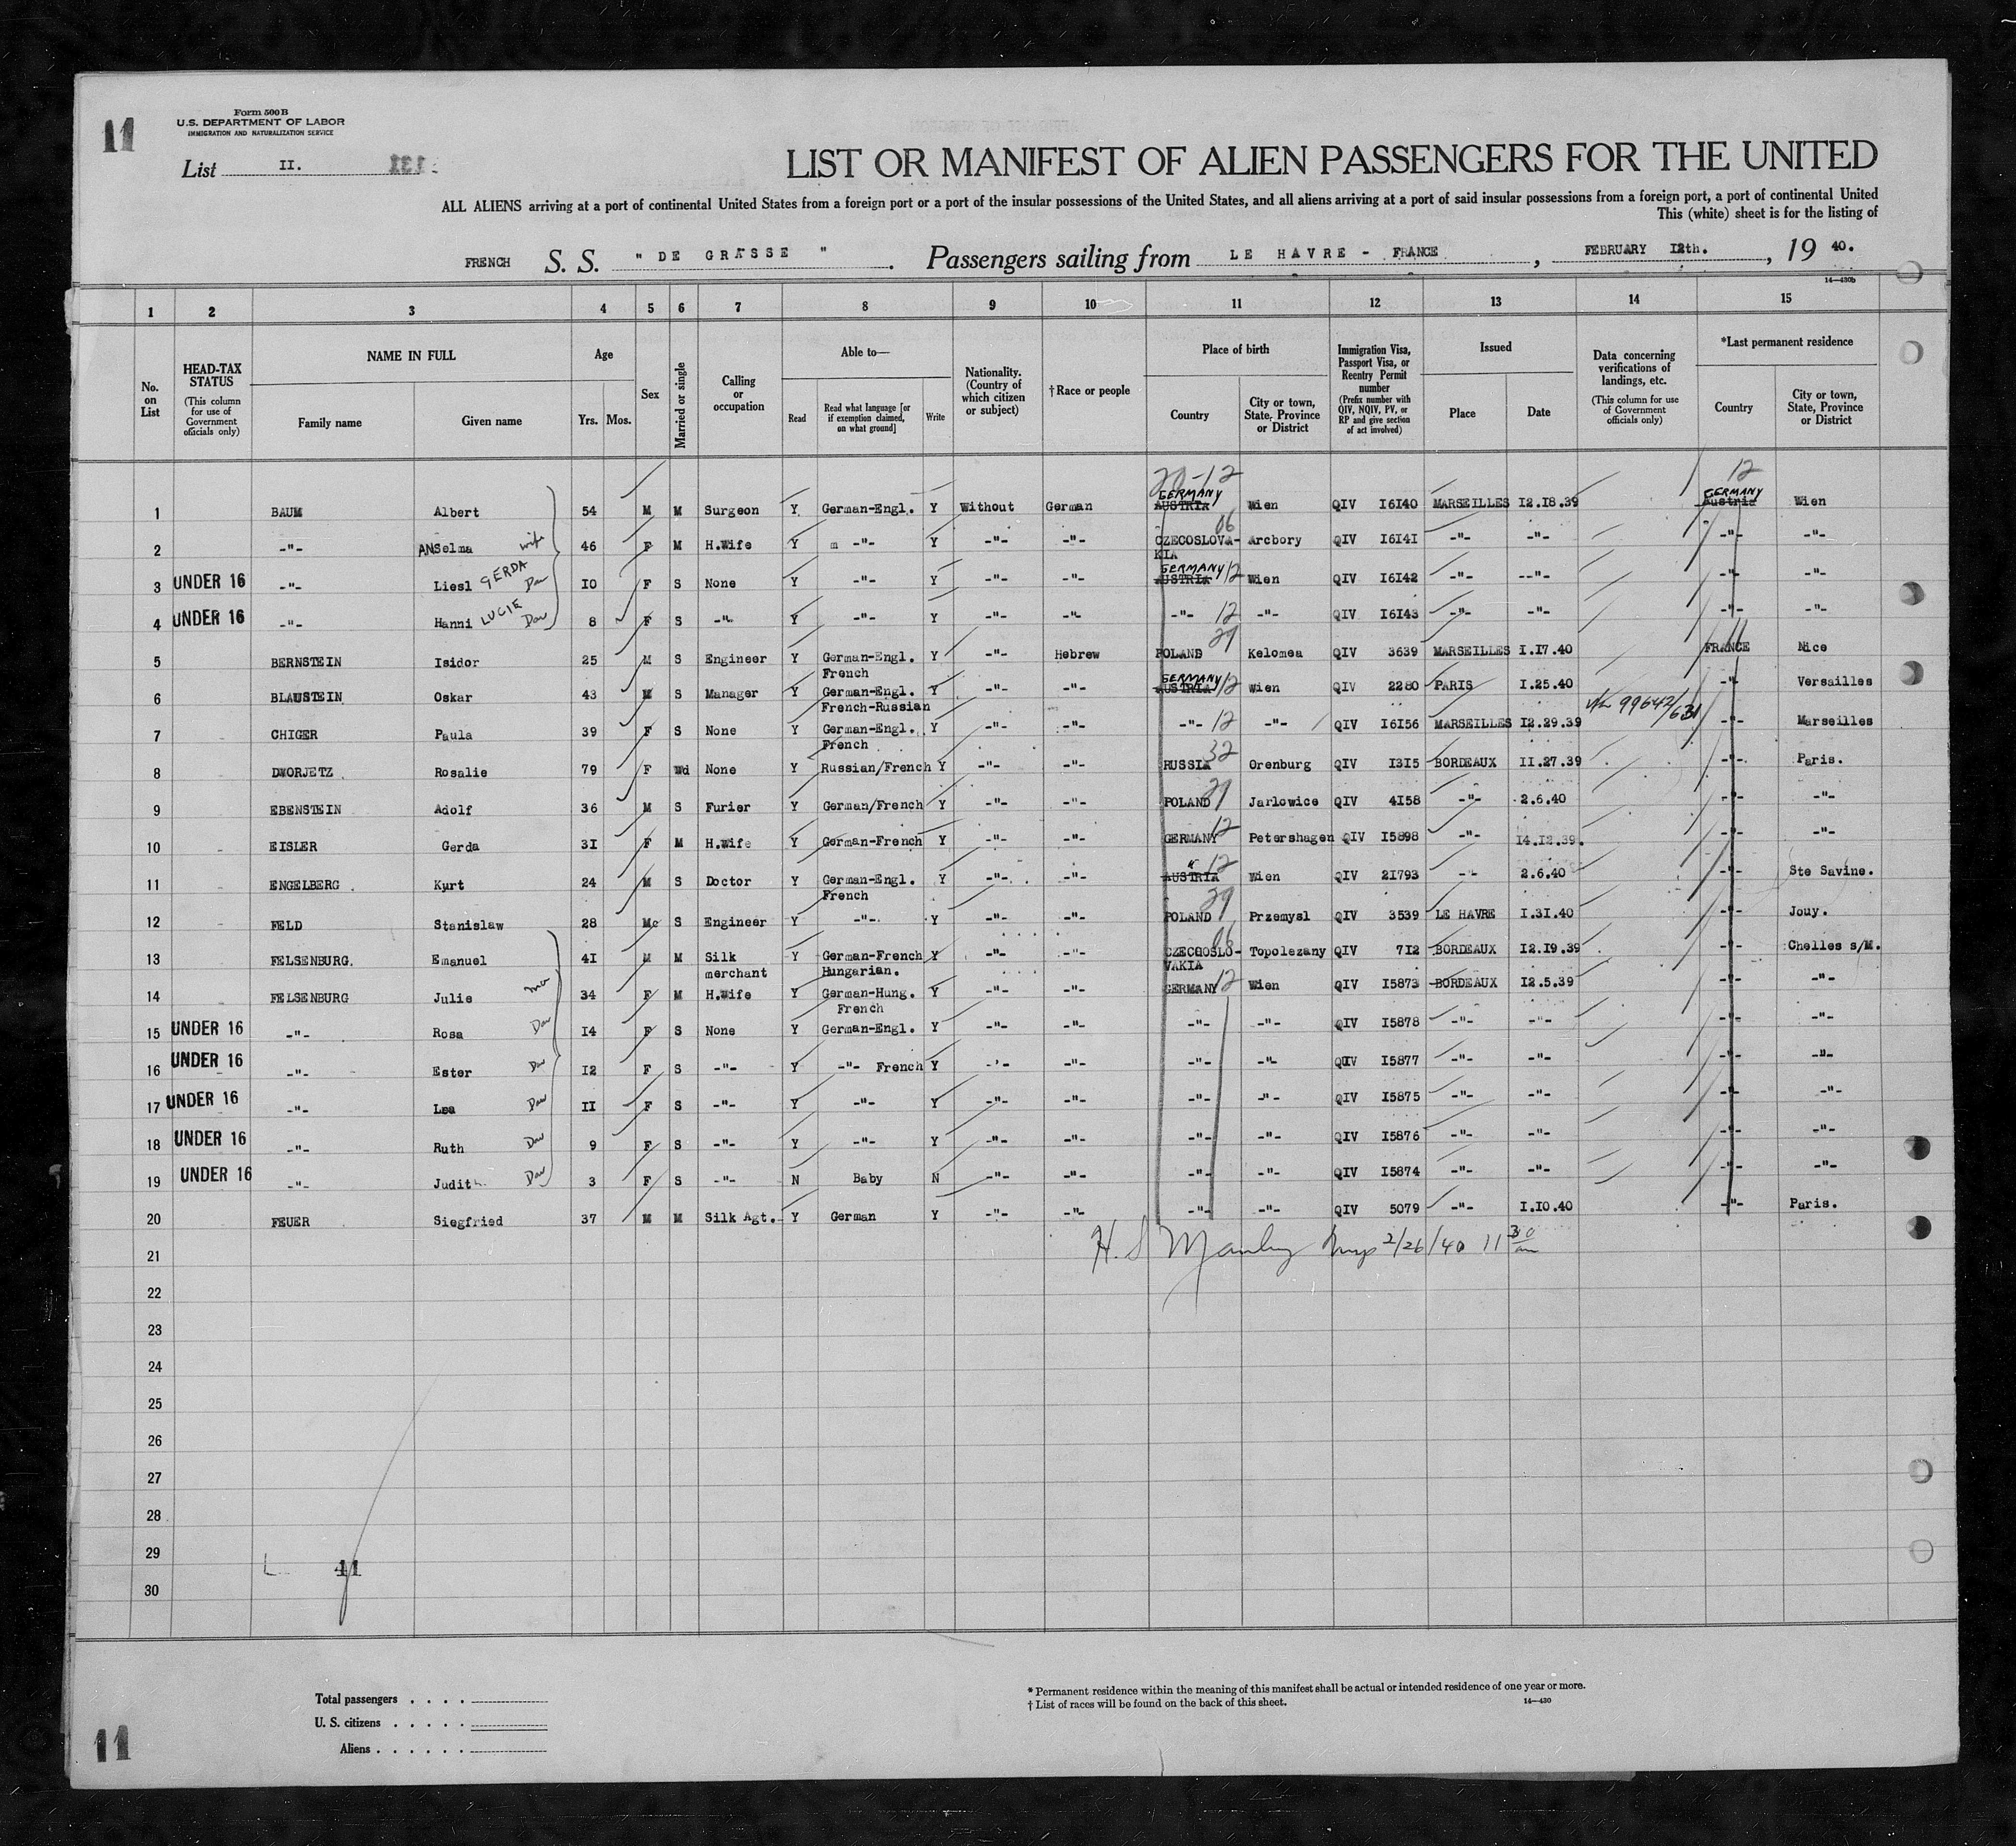 11
Form 500 B
U.S. DEPARTMENT OF LABOR
IMMIGRATION AND NATURALIZATION SERVICE
List II. 131
LIST OR MANIFEST OF ALIEN PASSENGERS FOR THE UNITED
ALL ALIENS arriving at a port of continental United States from a foreign port or a port of the insular possessions of the United States, and all aliens arriving at a port of said insular possessions from a foreign port, a port of continental United
This (white) sheet is for the listing of
FRENCH S. S. " DE GRASSE " . Passengers sailing from LE HAVRE - FRANCE , FEBRUARY 12th. , 19 40.
14—430b
1 2 3 4 5 6 7 8 9 10 11 12 13 14 15
No. on List
HEAD-TAX STATUS (This column for use of Government officials only)
NAME IN FULL Family name Given name
Age Yrs. Mos.
Sex
Married or single
Calling or occupation
Able to— Read Read what language [or if exemption claimed, on what ground] Write
Nationality. (Country of which citizen or subject)
†Race or people
Place of birth Country City or town, State, Province or District
Immigration Visa, Passport Visa, or Reentry Permit number (Prefix number with QIV, NQIV, PV, or RP and give section of act involved)
Issued Place Date
Data concerning verifications of landings, etc. (This column for use of Government officials only)
*Last permanent residence Country City or town, State, Province or District
20-12 12
1 BAUM Albert 54 M M Surgeon Y German-Engl. Y Without German GERMANY AUSTRIA Wien QIV 16140 MARSEILLES 12.18.39 GERMANY Austria Wien
2 -"- ANSelma wife 46 F M H.Wife Y m -"- Y -"- -"- CZECOSLOVA-KIA 06 Arcbory QIV 16141 -"- -"- -"- -"-
3 UNDER 16 -"- Liesl GERDA Dau 10 F S None Y -"- Y -"- -"- GERMANY AUSTRIA 12 Wien QIV 16142 -"- --"- -"- -"-
4 UNDER 16 -"- Hanni LUCIE Dau 8 F S -"- Y -"- Y -"- -"- -"- 12 -"- QIV 16143 -"- -"- -"- -"-
5 BERNSTEIN Isidor 25 M S Engineer Y German-Engl. French Y -"- Hebrew POLAND 29 Kelomea QIV 3639 MARSEILLES 1.17.40 FRANCE Nice
6 BLAUSTEIN Oskar 43 M S Manager Y German-Engl. French-Russian Y -"- -"- GERMANY AUSTRIA 12 Wien QIV 2280 PARIS 1.25.40 -"- Versailles
7 CHIGER Paula 39 F S None Y German-Engl. French Y -"- -"- -"- 12 -"- QIV 16156 MARSEILLES 12.29.39 99642/631 -"- Marseilles
8 DWORJETZ Rosalie 79 F Wd None Y Russian/French Y -"- -"- RUSSIA 32 Orenburg QIV 1315 BORDEAUX 11.27.39 -"- Paris.
9 EBENSTEIN Adolf 36 M S Furier Y German/French Y -"- -"- POLAND 29 Jarlowice QIV 4158 -"- 2.6.40 -"- -"-
10 EISLER Gerda 31 F M H.Wife Y German-French Y -"- -"- GERMANY 12 Petershagen QIV 15898 -"- 14.12.39. -"- -"-
11 ENGELBERG Kurt 24 M S Doctor Y German-Engl. French Y -"- -"- " AUSTRIA 12 Wien QIV 21793 -"- 2.6.40 -"- Ste Savine.
12 FELD Stanislaw 28 Mc S Engineer Y -"- Y -"- -"- POLAND 29 Przemysl QIV 3539 LE HAVRE 1.31.40 -"- Jouy.
13 FELSENBURG. Emanuel 41 M M Silk merchant Y German-French Hungarian. Y -"- -"- CZECHOSLO-VAKIA 06 Topolezany QIV 712 BORDEAUX 12.19.39 -"- Chelles s/M.
14 FELSENBURG Julie 34 F M H.Wife Y German-Hung. French Y -"- -"- GERMANY 12 Wien QIV 15873 BORDEAUX 12.5.39 -"- -"-
15 UNDER 16 -"- Rosa Dau 14 F S None Y German-Engl. Y -"- -"- -"- -"- QIV 15878 -"- -"- -"- -"-
16 UNDER 16 -"- Ester Dau 12 F S -"- Y -"- French Y -"- -"- -"- -"- QIV 15877 -"- -"- -"- -"-
17 UNDER 16 -"- Lea Dau 11 F S -"- Y -"- Y -"- -"- -"- -"- QIV 15875 -"- -"- -"- -"-
18 UNDER 16 -"- Ruth Dau 9 F S -"- Y -"- Y -"- -"- -"- -"- QIV 15876 -"- -"- -"- -"-
19 UNDER 16 -"- Judith Dau 3 F S -"- N Baby N -"- -"- -"- -"- QIV 15874 -"- -"- -"- -"-
20 FEUER Siegfried 37 M M Silk Agt. Y German Y -"- -"- -"- -"- QIV 5079 -"- 1.10.40 -"- Paris.
21 H. S Manley Insp 2/26/40 11 30 am
22
23
24
25
26
27
28
29
30
11
Total passengers . . . .
U. S. citizens . . . . .
Aliens . . . . . .
* Permanent residence within the meaning of this manifest shall be actual or intended residence of one year or more.
† List of races will be found on the back of this sheet.
14—430
11